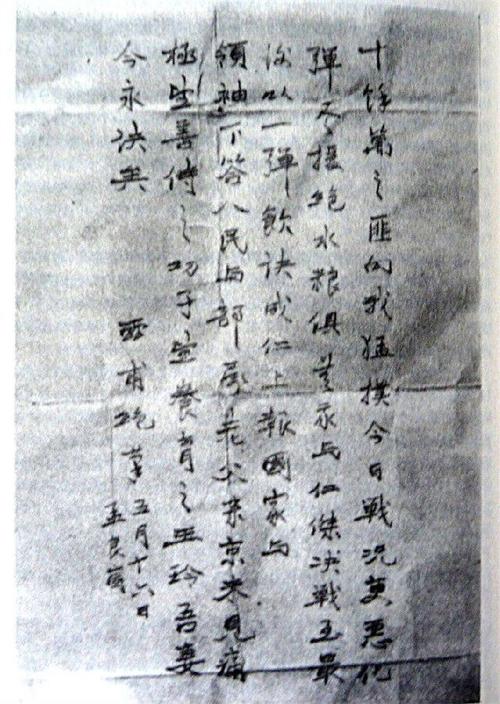 十餘萬之匪向我猛撲今日戰況更惡化
彈尽援絕水粮俱無我与仁傑決戰至最
後以一彈飲訣成仁上報國家与
領袖下答人民与部屬老父来京未見痛
極望善待之幼子望養育之玉玲吾妻
今永訣矣
灵甫絕筆 五月十六日
孟良崮